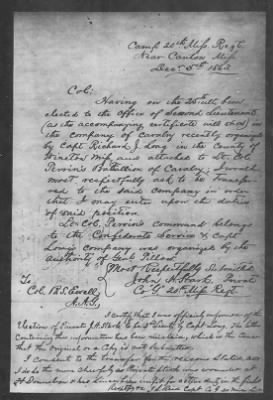 Camp 20th Miss. Regt.
Near Canton Miss
Decr 5th 1863
Col:
Having on the 25th ult. been
elected to the Office of Second Lieutenant
(as the accompanying certificate will show) in
the company of Cavalry recently organized
by Capt Richard J. Long in the County of
Winston Miss and attached to Lt. Col.
Perrin's Battalion of Cavalry; I would
most respectfully ask to be transfer-
red to the said Company in order
that I may enter upon the duties
of said position.
Lt. Col. Perrin's command belongs
to the Confederate Service & Capt
Long's company was organized by the
authority of Genl. Pillow.
Most Respectfully Submitted
John H Stark Private
Co "G" 20th Miss Regt
To
Col. B.S. Ewell,
A.A.G.
I certify that I was officially informed of the
Election of Private J.H. Stark to be 2nd Lieut by Capt Long. The letter
Containing this information has been mislaid, which is the reason
that the original or a Copy is not
I consent to the transfer for the reasons stated and
I do so the more cheerfully as Private Stark was wounded at
Ft Donelson & has been unfit for active duty in the field
Capt Co G 20 Miss